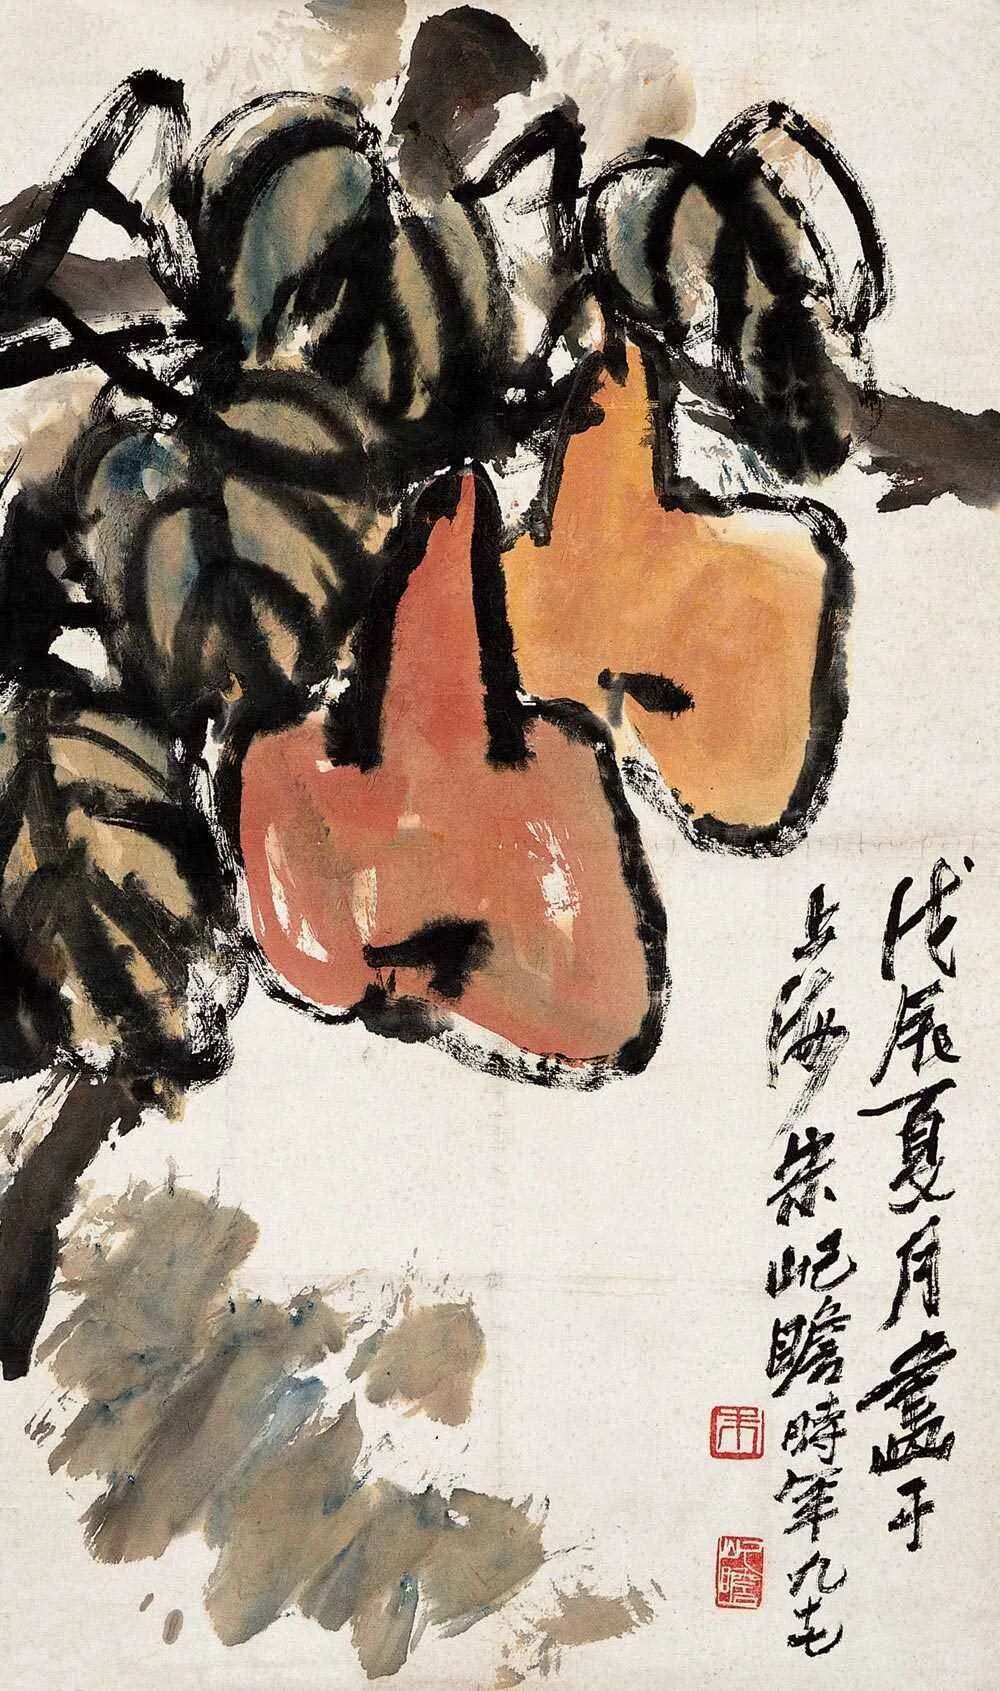 戊辰夏月畫于
上海朱屺瞻時年九七
朱
屺瞻